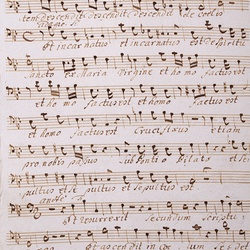 tem descendit descendit descendit de coelis
et incarnatus et incarnatus est de spiritu
sancto ex maria virgine et homo factus est
et homo factus est et homo factus est
et homo factus est Crucifixus etiam
pro nobis passus sub pontio pilato et se
pultus et se pultus et sepultus est
et resurrexit secundum scriptu
et ascendit in